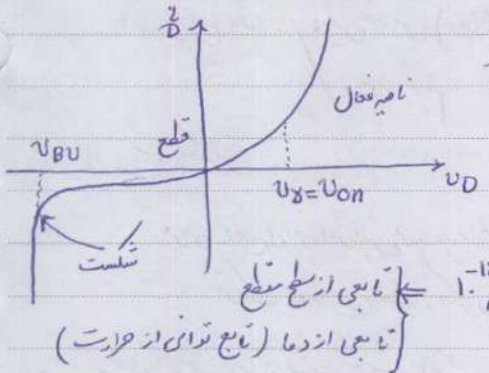 i_D
ناحیه فعال
قطع
V_BV
V_D
V_γ = V_on
شکست
10^-15 ⇐ { تابعی از سطح مقطع
تابعی از دما (تابع توانی از حرارت)